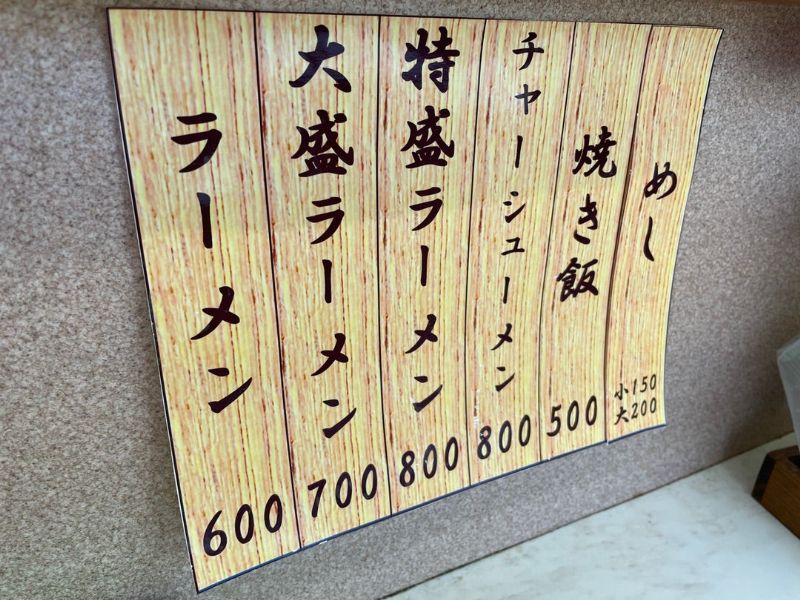 ラーメン 600
大盛ラーメン 700
特盛ラーメン 800
チャーシューメン 800
焼き飯 500
めし 小150
大200